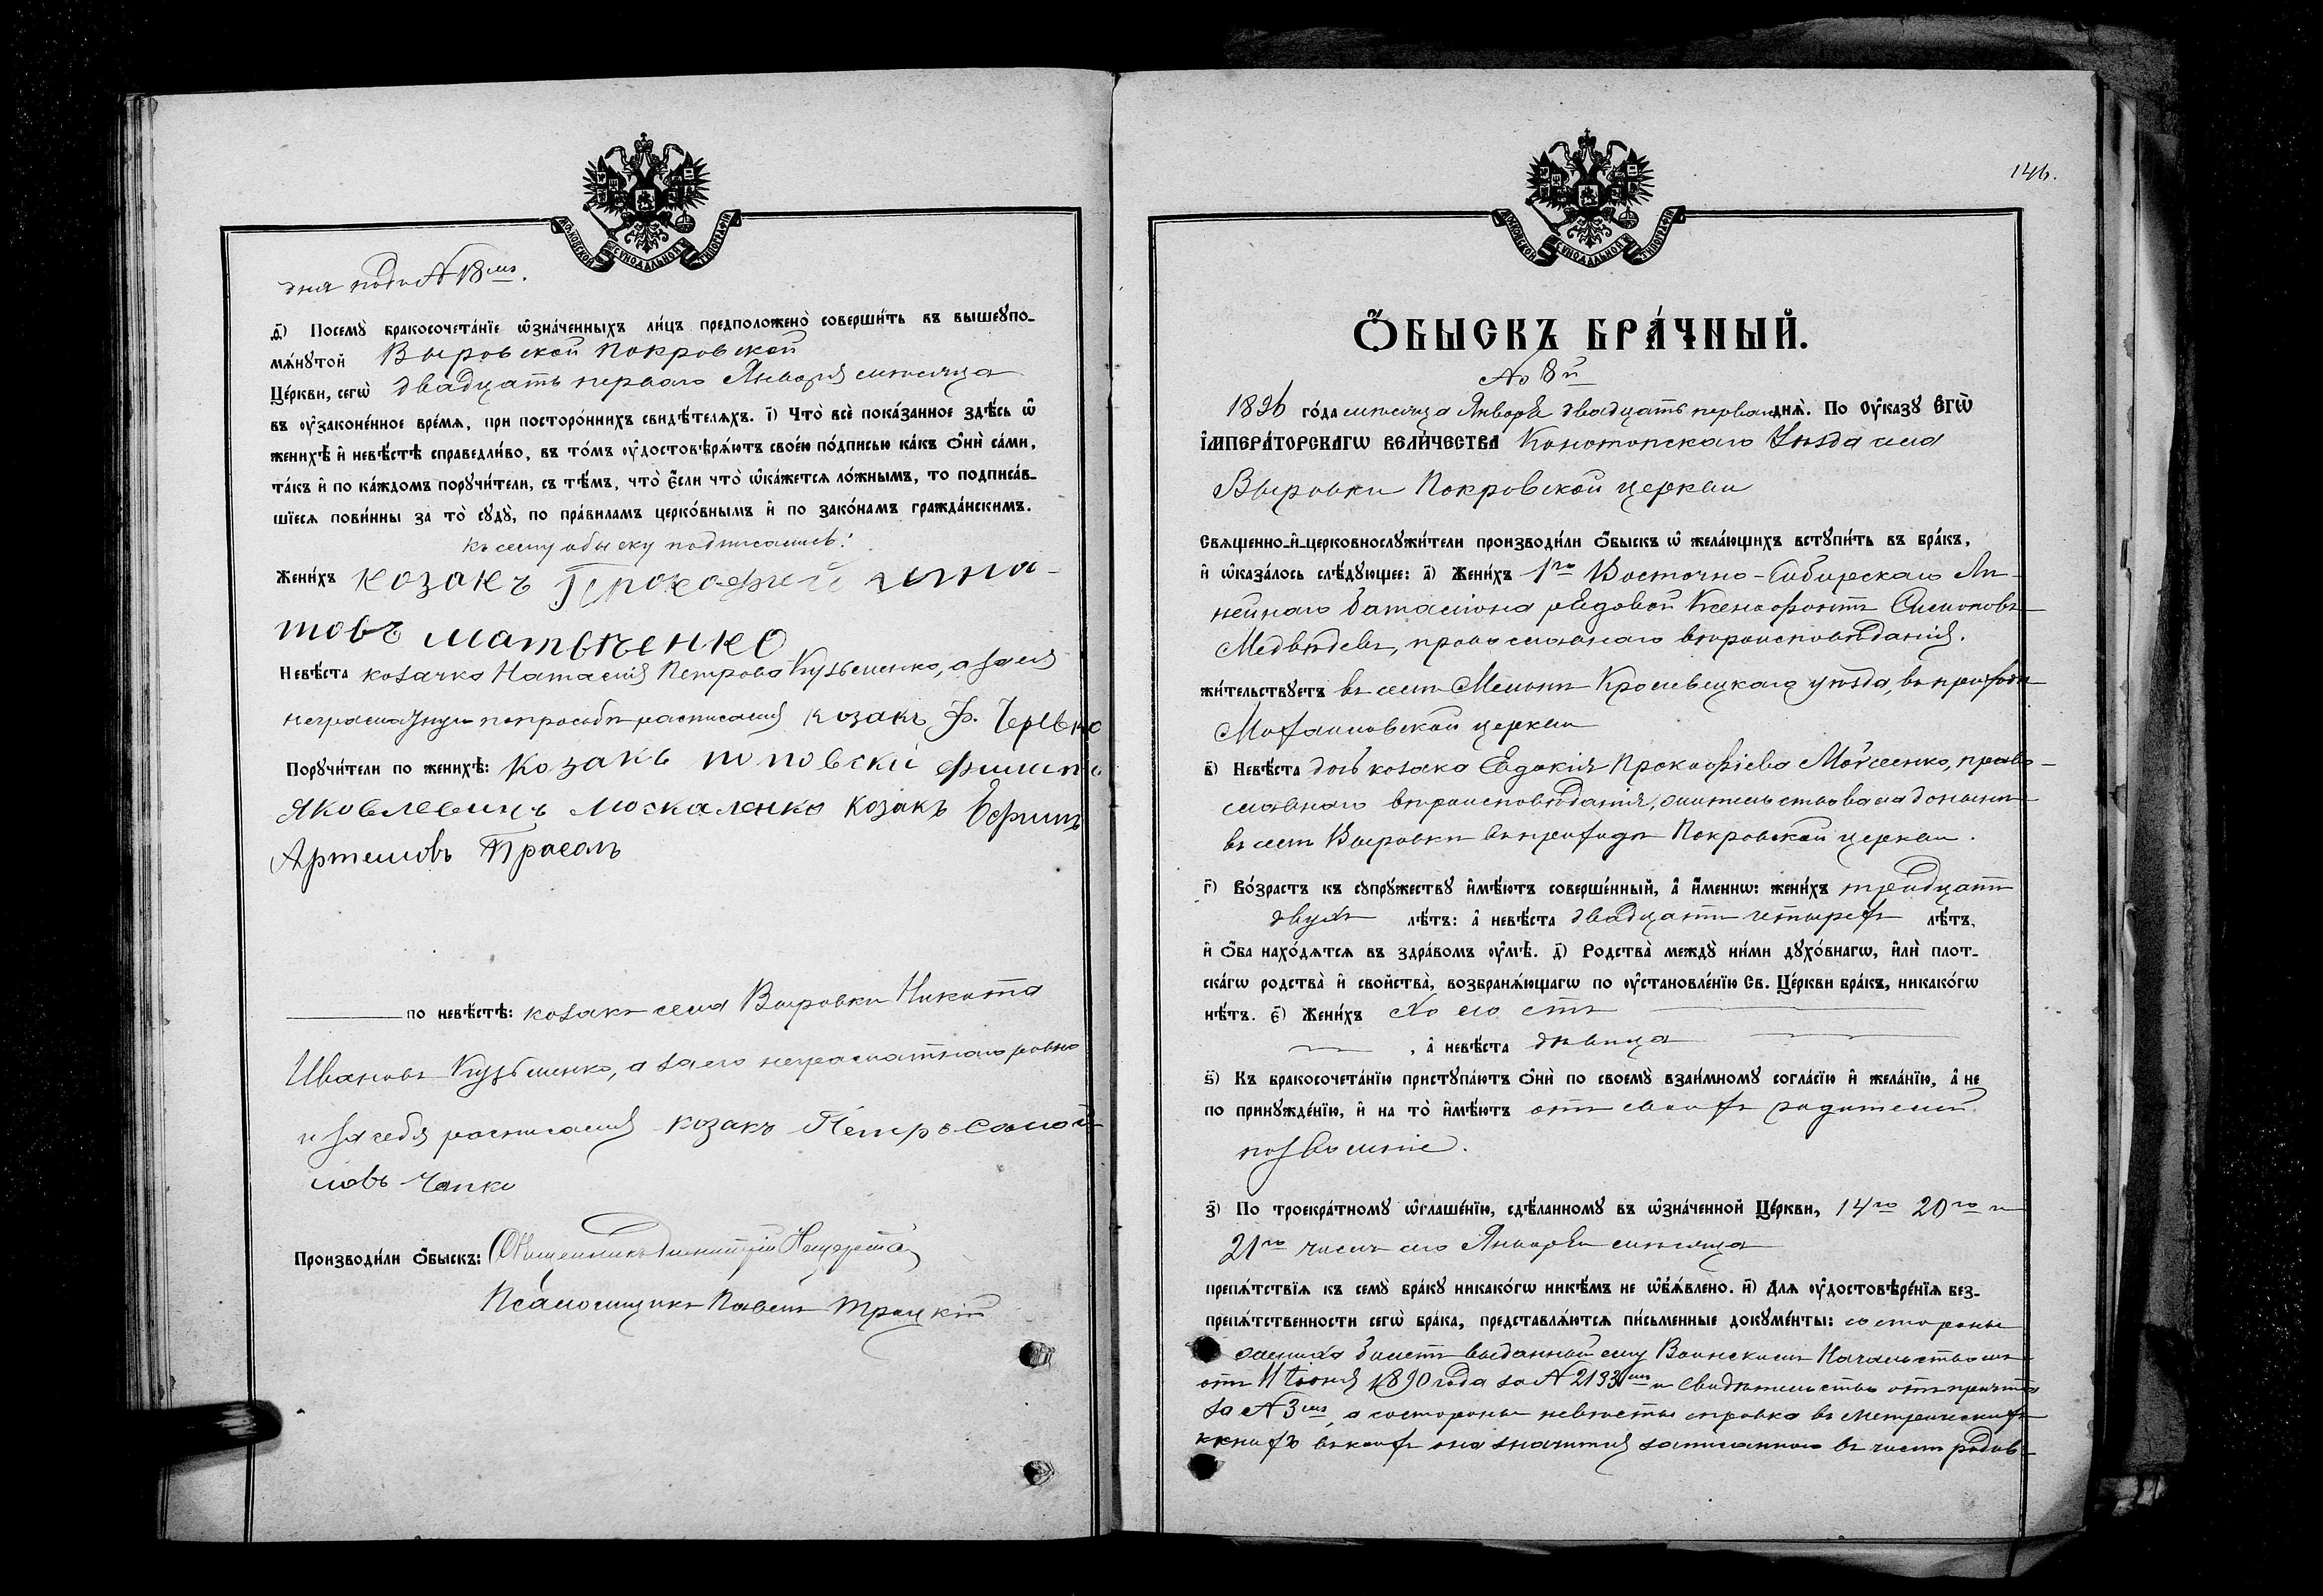 МОСКОВСКОЙ СѴНОДАЛЬНОЙ ТИПОГРАФІИ
дня подъ № 18мъ.
д҃) Посемꙋ̀ бракосочета́нїе ѡ҆зна́ченныхъ ли́цъ предположено̀ соверши́ть въ вышеꙋпо-
мѧ́нꙋтой Выровской Покровской
Це́ркви, сегѡ̀ двадцать перваго Января мѣсяца
въ ᲂу҆законе́нное вре́мѧ, при посторо́ннихъ свидѣ́телѧхъ. і҃) Что̀ всѐ пока́занное здѣ́сь ѡ҆
женихѣ̀ и҆ невѣ́стѣ справедли́во, въ то́мъ ᲂу҆достовѣрѧ́ютъ свое́ю по́дписью ка́къ ѻ҆нѝ са́ми,
та́къ и҆ по ка́ждомъ порꙋчи́тели, съ тѣ́мъ, что̀ є҆́сли что̀ ѡ҆ка́жетсѧ ло́жнымъ, то подписа́в-
шїесѧ пови́нны за то̀ сꙋдꙋ̀, по пра́виламъ церко́внымъ и҆ по зако́намъ гражда́нскимъ.
Къ сему обыску подписались:
Жени́хъ козакъ Прокофий Игна-
товъ Матвѣенко
Невѣ́ста козачка Наталія Петрова Кузьменко, а за ея
неграмотную по просьбѣ росписался козакъ Ф. Черевко
Порꙋчи́тели по женихѣ̀: Козакъ поповски Филипъ
Яковлевичъ Москаленко козакъ Ефимъ
Артемовъ Прасолъ
по невѣ́стѣ: козакъ села Выровки Никита
Ивановъ Кузьменко, а за его неграмотнаго ровно
и за себя росписался козакъ Петръ Самой
ловъ Чапко
Производи́ли ѻ҆́быскъ: Священникъ Димитрій
Псаломщикъ Павелъ Троцкій
146.
МОСКОВСКОЙ СѴНОДАЛЬНОЙ ТИПОГРАФІИ
Ѻ҆́БЫСКЪ БРА́ЧНЫЙ.
№ 8й
1896 го́да мѣсяца Января двадцать перваго днѧ̀. По Оу҆ка́зꙋ Є҆ГѠ̀
І҆МПЕРА́ТОРСКАГѠ ВЕЛИ́ЧЕСТВА Конотопскаго Уѣзда села
Выровки Покровской церкви
Свѧщенно-и҆-церковнослꙋжи́тели производи́ли ѻ҆́быскъ ѡ҆ жела́ющихъ встꙋпи́ть въ бра́къ,
и҆ ѡ҆каза́лось слѣ́дꙋющее: а҃) Жени́хъ 1го Восточно-Сибирскаго Ли-
нейнаго баталіона рядовой Ксенофонтъ Симоновъ
Медвѣдевъ, православнаго вѣроисповѣданія.
жи́тельствꙋетъ въ селѣ Мельнѣ Кролевецкаго уѣзда, въ приходѣ
Михаиловской церкви
в҃) Невѣ́ста дочь козака Евдокія Прокофіева Мойсеенко, право-
славнаго вѣроисповѣданія, жительствовала донынѣ
въ селѣ Выровки въ приходѣ Покровской церкви.
г҃) Во́зрастъ къ сꙋпрꙋ́жествꙋ и҆мѣ́ютъ соверше́нный, а҆ и҆́меннѡ: жени́хъ тридцати
двухъ лѣ́тъ: а҆ невѣ́ста двадцати четырехъ лѣ́тъ,
и҆ ѻ҆́ба нахо́дѧтсѧ въ здра́вомъ ᲂу҆мѣ̀. д҃) Родства̀ междꙋ̀ ни́ми дꙋхо́внагѡ, и҆лѝ плот-
ска́гѡ родства̀ и҆ свойства̀, возбранѧ́ющагѡ по ᲂу҆становле́нїю Св. Це́ркви бра́къ, никако́гѡ
нѣ́тъ. є҃) Жени́хъ холостъ
, а҆ невѣ́ста дѣвица
ѕ҃) Къ бракосочета́нїю пристꙋпа́ютъ ѻ҆нѝ по своемꙋ̀ взаи́мномꙋ согла́сїю и҆ жела́нїю, а҆ не
по принꙋжде́нїю, и҆ на то̀ и҆мѣ́ютъ отъ своихъ родителей
позволеніе.
з҃) По троекра́тномꙋ ѡ҆глаше́нїю, сдѣ́ланномꙋ въ ѡ҆зна́ченной Це́ркви, 14го 20го и
21го числъ сего Января мѣсяца
препѧ́тствїѧ къ семꙋ̀ бра́кꙋ никако́гѡ никѣ́мъ не ѡ҆б̾ѧ́влено. и҃) Для ᲂу҆достовѣре́нїѧ без-
препѧ́тственности сегѡ̀ бра́ка, представлѧ́ютсѧ пи́сьменные докꙋме́нты: со стороны
жениха билетъ выданный ему Воинскимъ Начальствомъ
отъ 11 Іюня 1890 года за № 2133мъ и свидѣтельство отъ причта
за № 3мъ, а со стороны невѣсты справка въ метрическихъ
книгахъ въ коихъ она значится записанною въ числѣ родив-